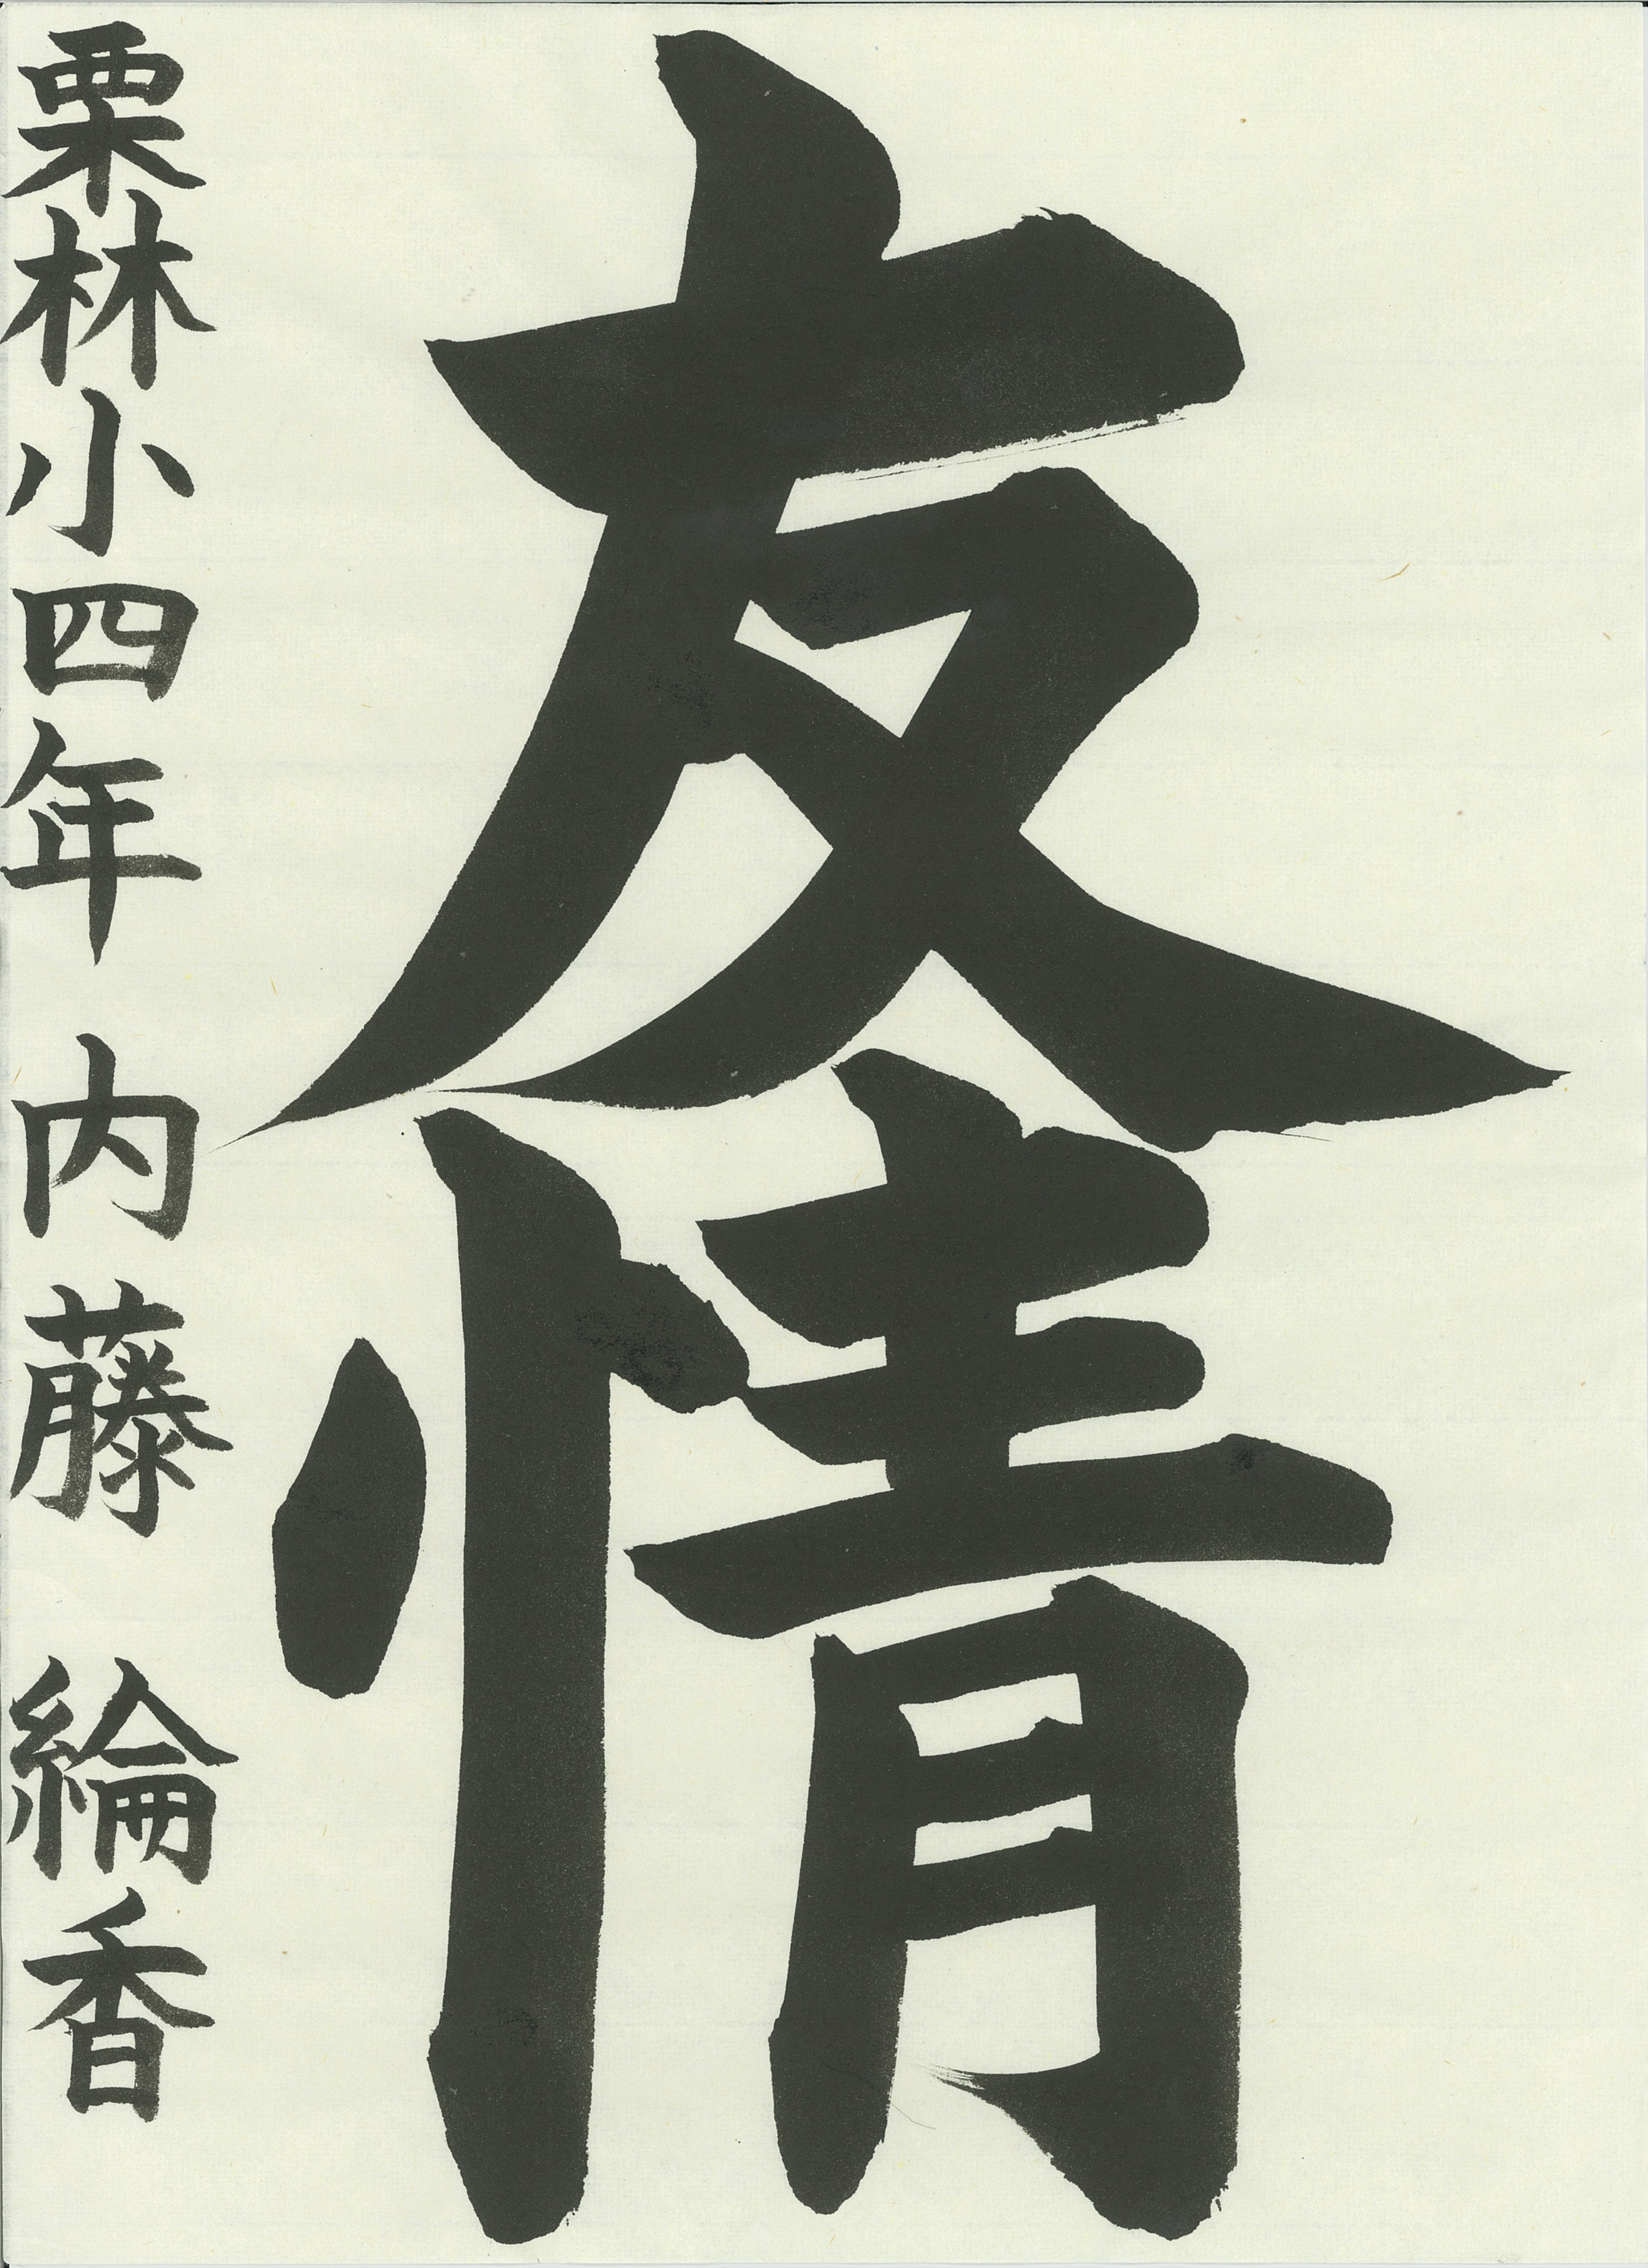 友情
栗林小四年 内藤 綸香